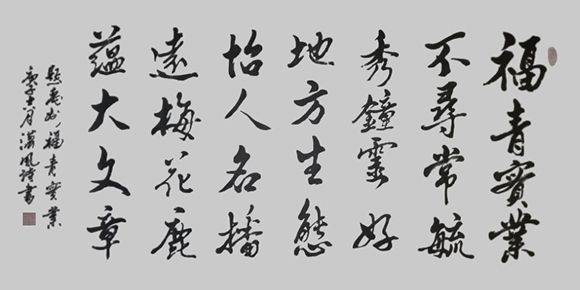 福青實業
不尋常毓
秀鐘靈好
地方生態
怡人名播
遠梅花鹿
蘊大文章
福青實業
庚子 月 風 書